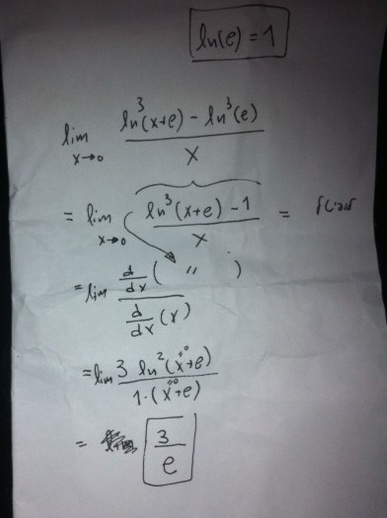 ln(e) = 1
lim x→0 ln³(x+e) - ln³(e) / x
= lim x→0 ln³(x+e) - 1 / x =
= lim d/dx ( " ) / d/dx (x)
= lim 3 ln²(x+e) / 1·(x+e)
= 3/e